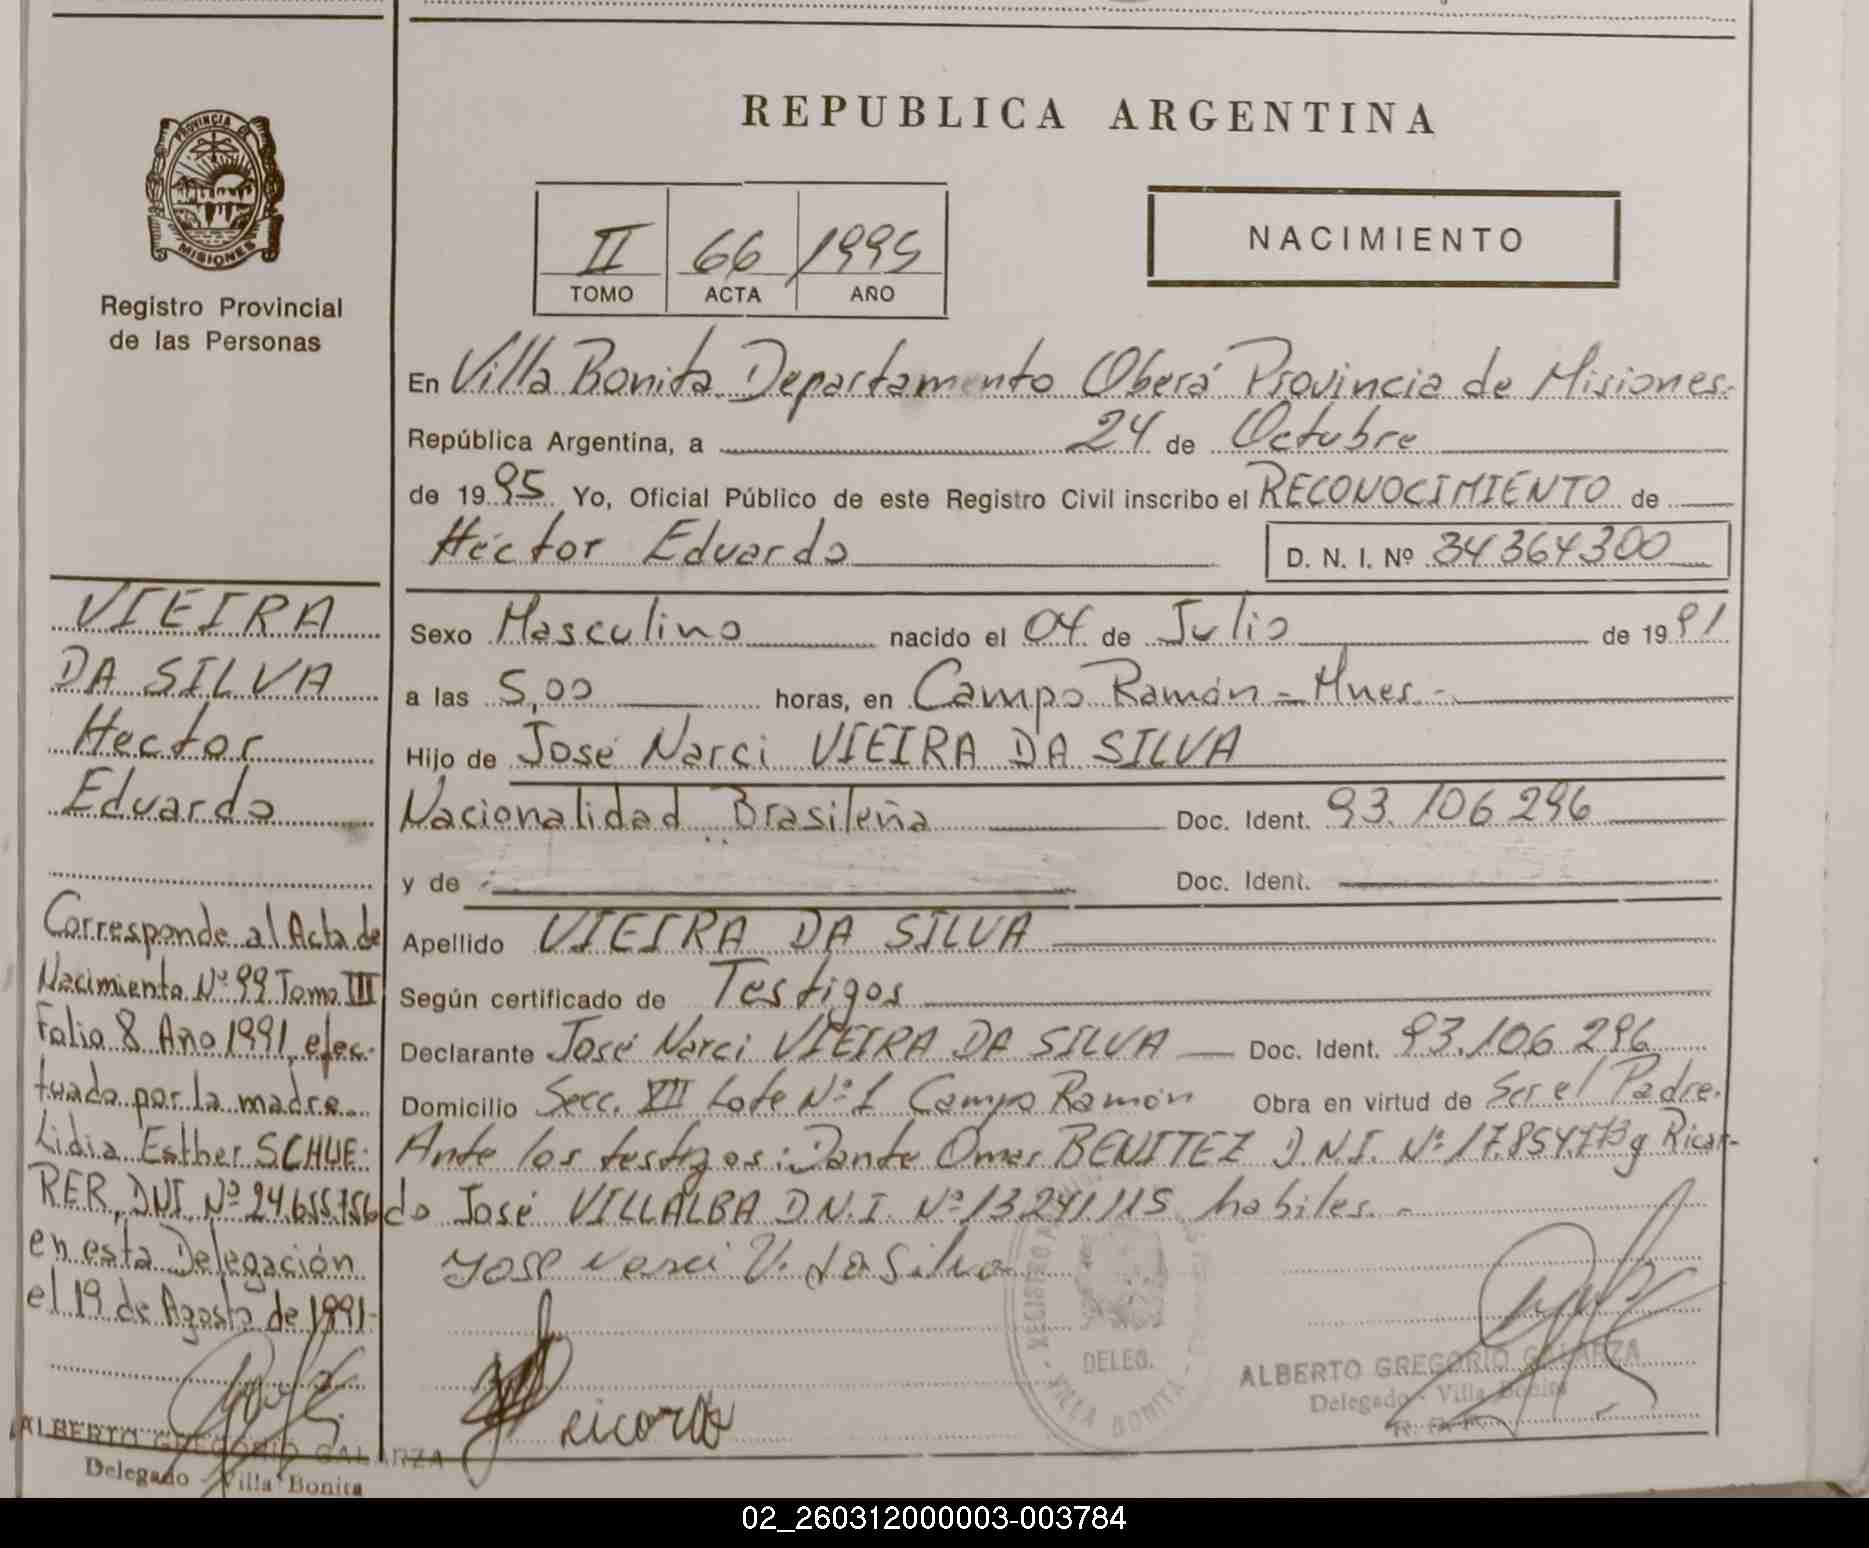 PROVINCIA DE
MISIONES
Registro Provincial
de las Personas
VIEIRA
DA SILVA
Hector
Eduardo
Corresponde al Acta de
Nacimiento Nº 99 Tomo III
Folio 8 Año 1991, efec-
tuado por la madre
Lidia Esther SCHUE-
RER, DNI Nº 24.655.756
en esta Delegación
el 19 de Agosto de 1991-
ALBERTO GREGORIO GALARZA
Delegado - Villa Bonita
REPUBLICA ARGENTINA
II 66 1995
TOMO ACTA AÑO
NACIMIENTO
En Villa Bonita Departamento Oberá Provincia de Misiones.
República Argentina, a 24 de Octubre
de 1995 Yo, Oficial Público de este Registro Civil inscribo el RECONOCIMIENTO de
Héctor Eduardo D. N. I. Nº 34364300
Sexo Masculino nacido el 04 de Julio de 1991
a las 5,00 horas, en Campo Ramón - Mnes.-
Hijo de José Narci VIEIRA DA SILVA
Nacionalidad Brasileña Doc. Ident. 93.106.296
y de Doc. Ident.
Apellido VIEIRA DA SILVA
Según certificado de Testigos
Declarante José Narci VIEIRA DA SILVA Doc. Ident. 93.106.296
Domicilio Secc. XII Lote Nº 1 Campo Ramón Obra en virtud de Ser el Padre.
Ante los testigos: Dante Omar BENITEZ D.N.I. Nº 17.854.773 y Ricar-
do José VILLALBA D.N.I. Nº 13.241.115 habiles.-
Jose Narci V. da Silva
DELEG.
VILLA BONITA
ALBERTO GREGORIO GALARZA
Delegado - Villa Bonita
02_260312000003-003784